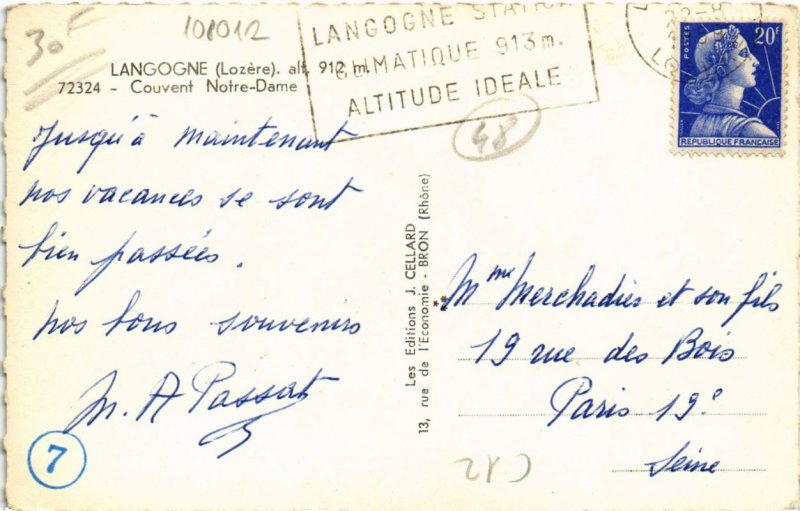 30F
101012
LANGOGNE (Lozère). alt. 912 m.
72324 - Couvent Notre-Dame
LANGOGNE STATION
CLIMATIQUE 913 m.
ALTITUDE IDEALE
POSTES 20F
REPUBLIQUE FRANÇAISE
48
Jusqu'à maintenant
nos vacances se sont
bien passées.
nos bons souvenirs
M. A Passat
7
Les Editions J. CELLARD
13, rue de l'Economie - BRON (Rhône)
Mme Merchadier et son fils
19 rue des Bois
Paris 19e
Seine